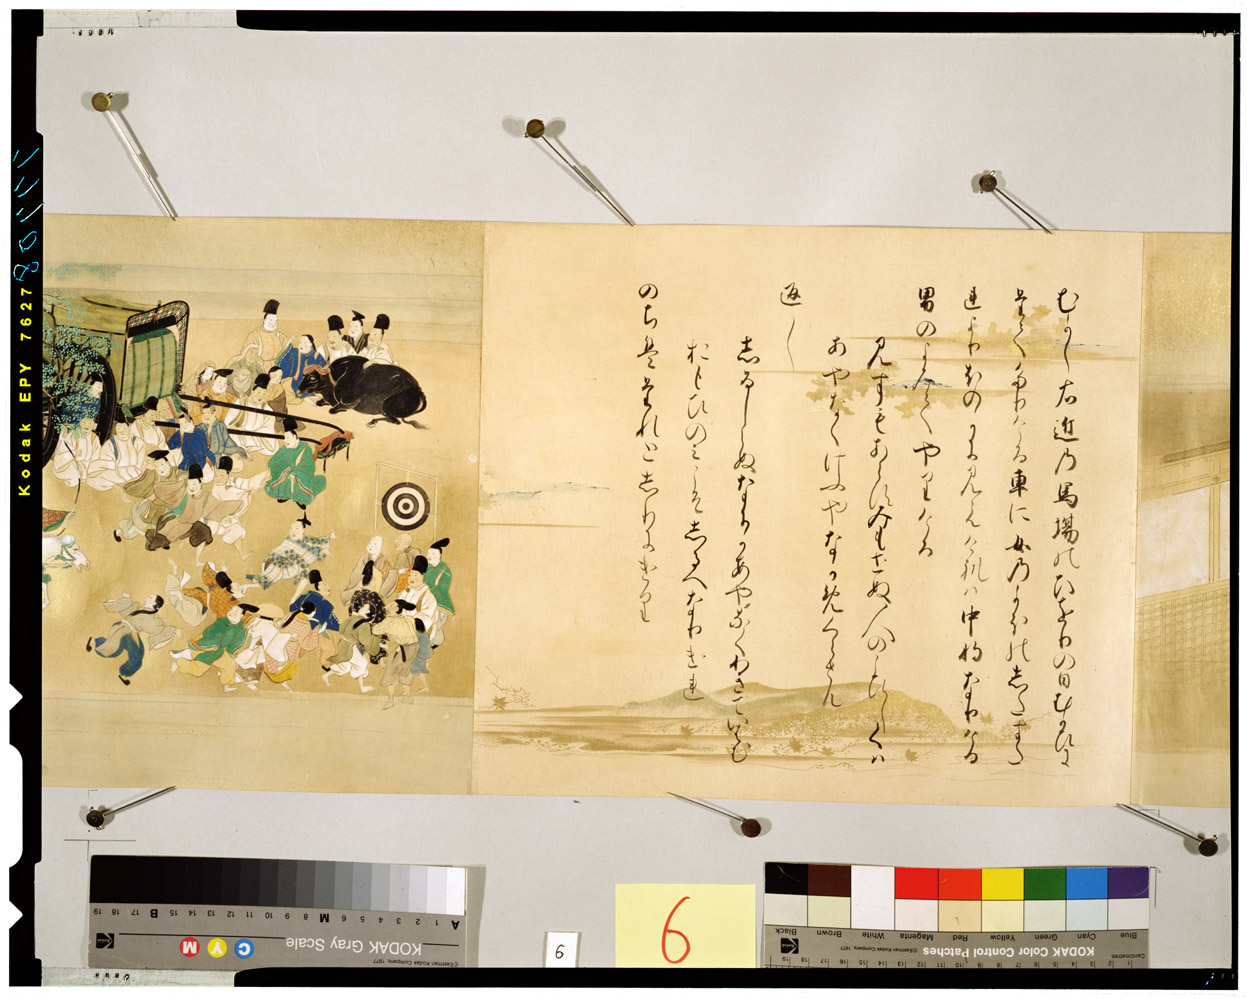 むかし右近乃馬場のひをりの日むかひに
たてたりける車に女乃かほのしたすた
れよりほのかに見えけれは中将なりける
男のよみてやりける
見すもあらす見もせぬ人のこひしくは
あやなくけふやなかめくらさん
返し
しるしらぬなにかあやなくわきていはむ
おもひのみこそしるへなりけれ
のちはたれとしりにけり
Kodak EPY 7627
6
6
KODAK Gray Scale
©Eastman Kodak Company, 1977
C Y M
A 1 2 3 4 5 6 M 8 9 10 11 12 13 14 15 B 17 18 19
KODAK Color Control Patches
©Eastman Kodak Company, 1977
Blue Cyan Green Yellow Red Magenta White Brown Black